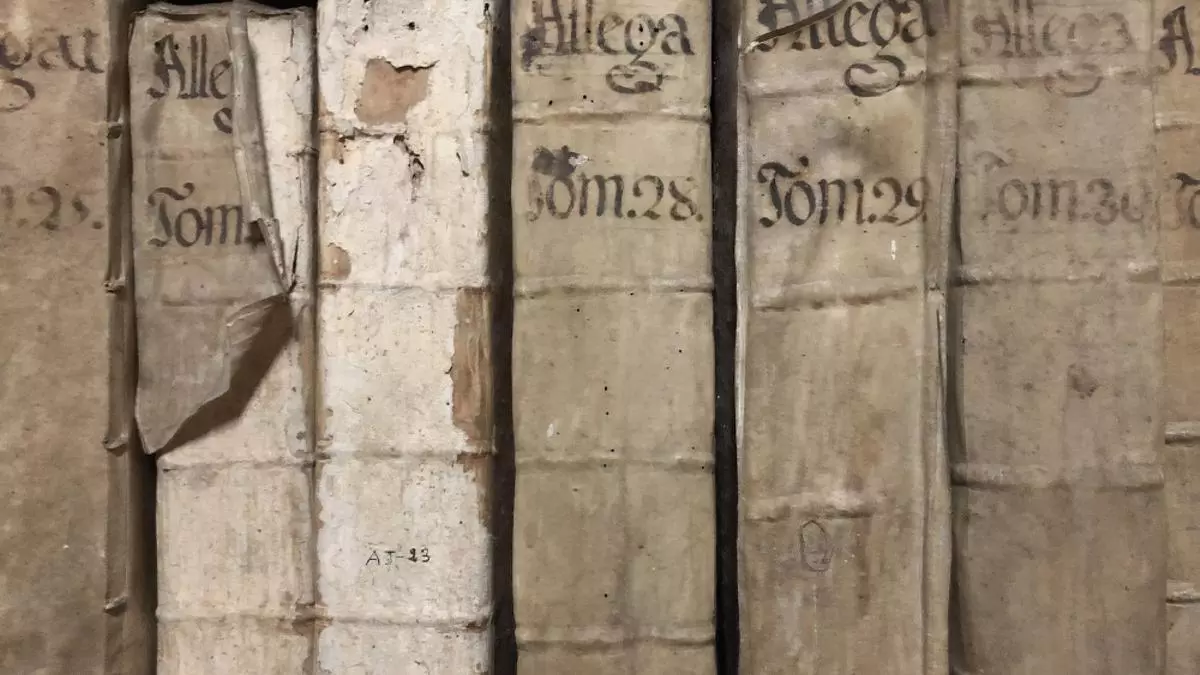 25.
Alle
g
Tom.
AJ-23
Allega
Tom.28.
Allega
Tom.29.
Allega
Tom.30